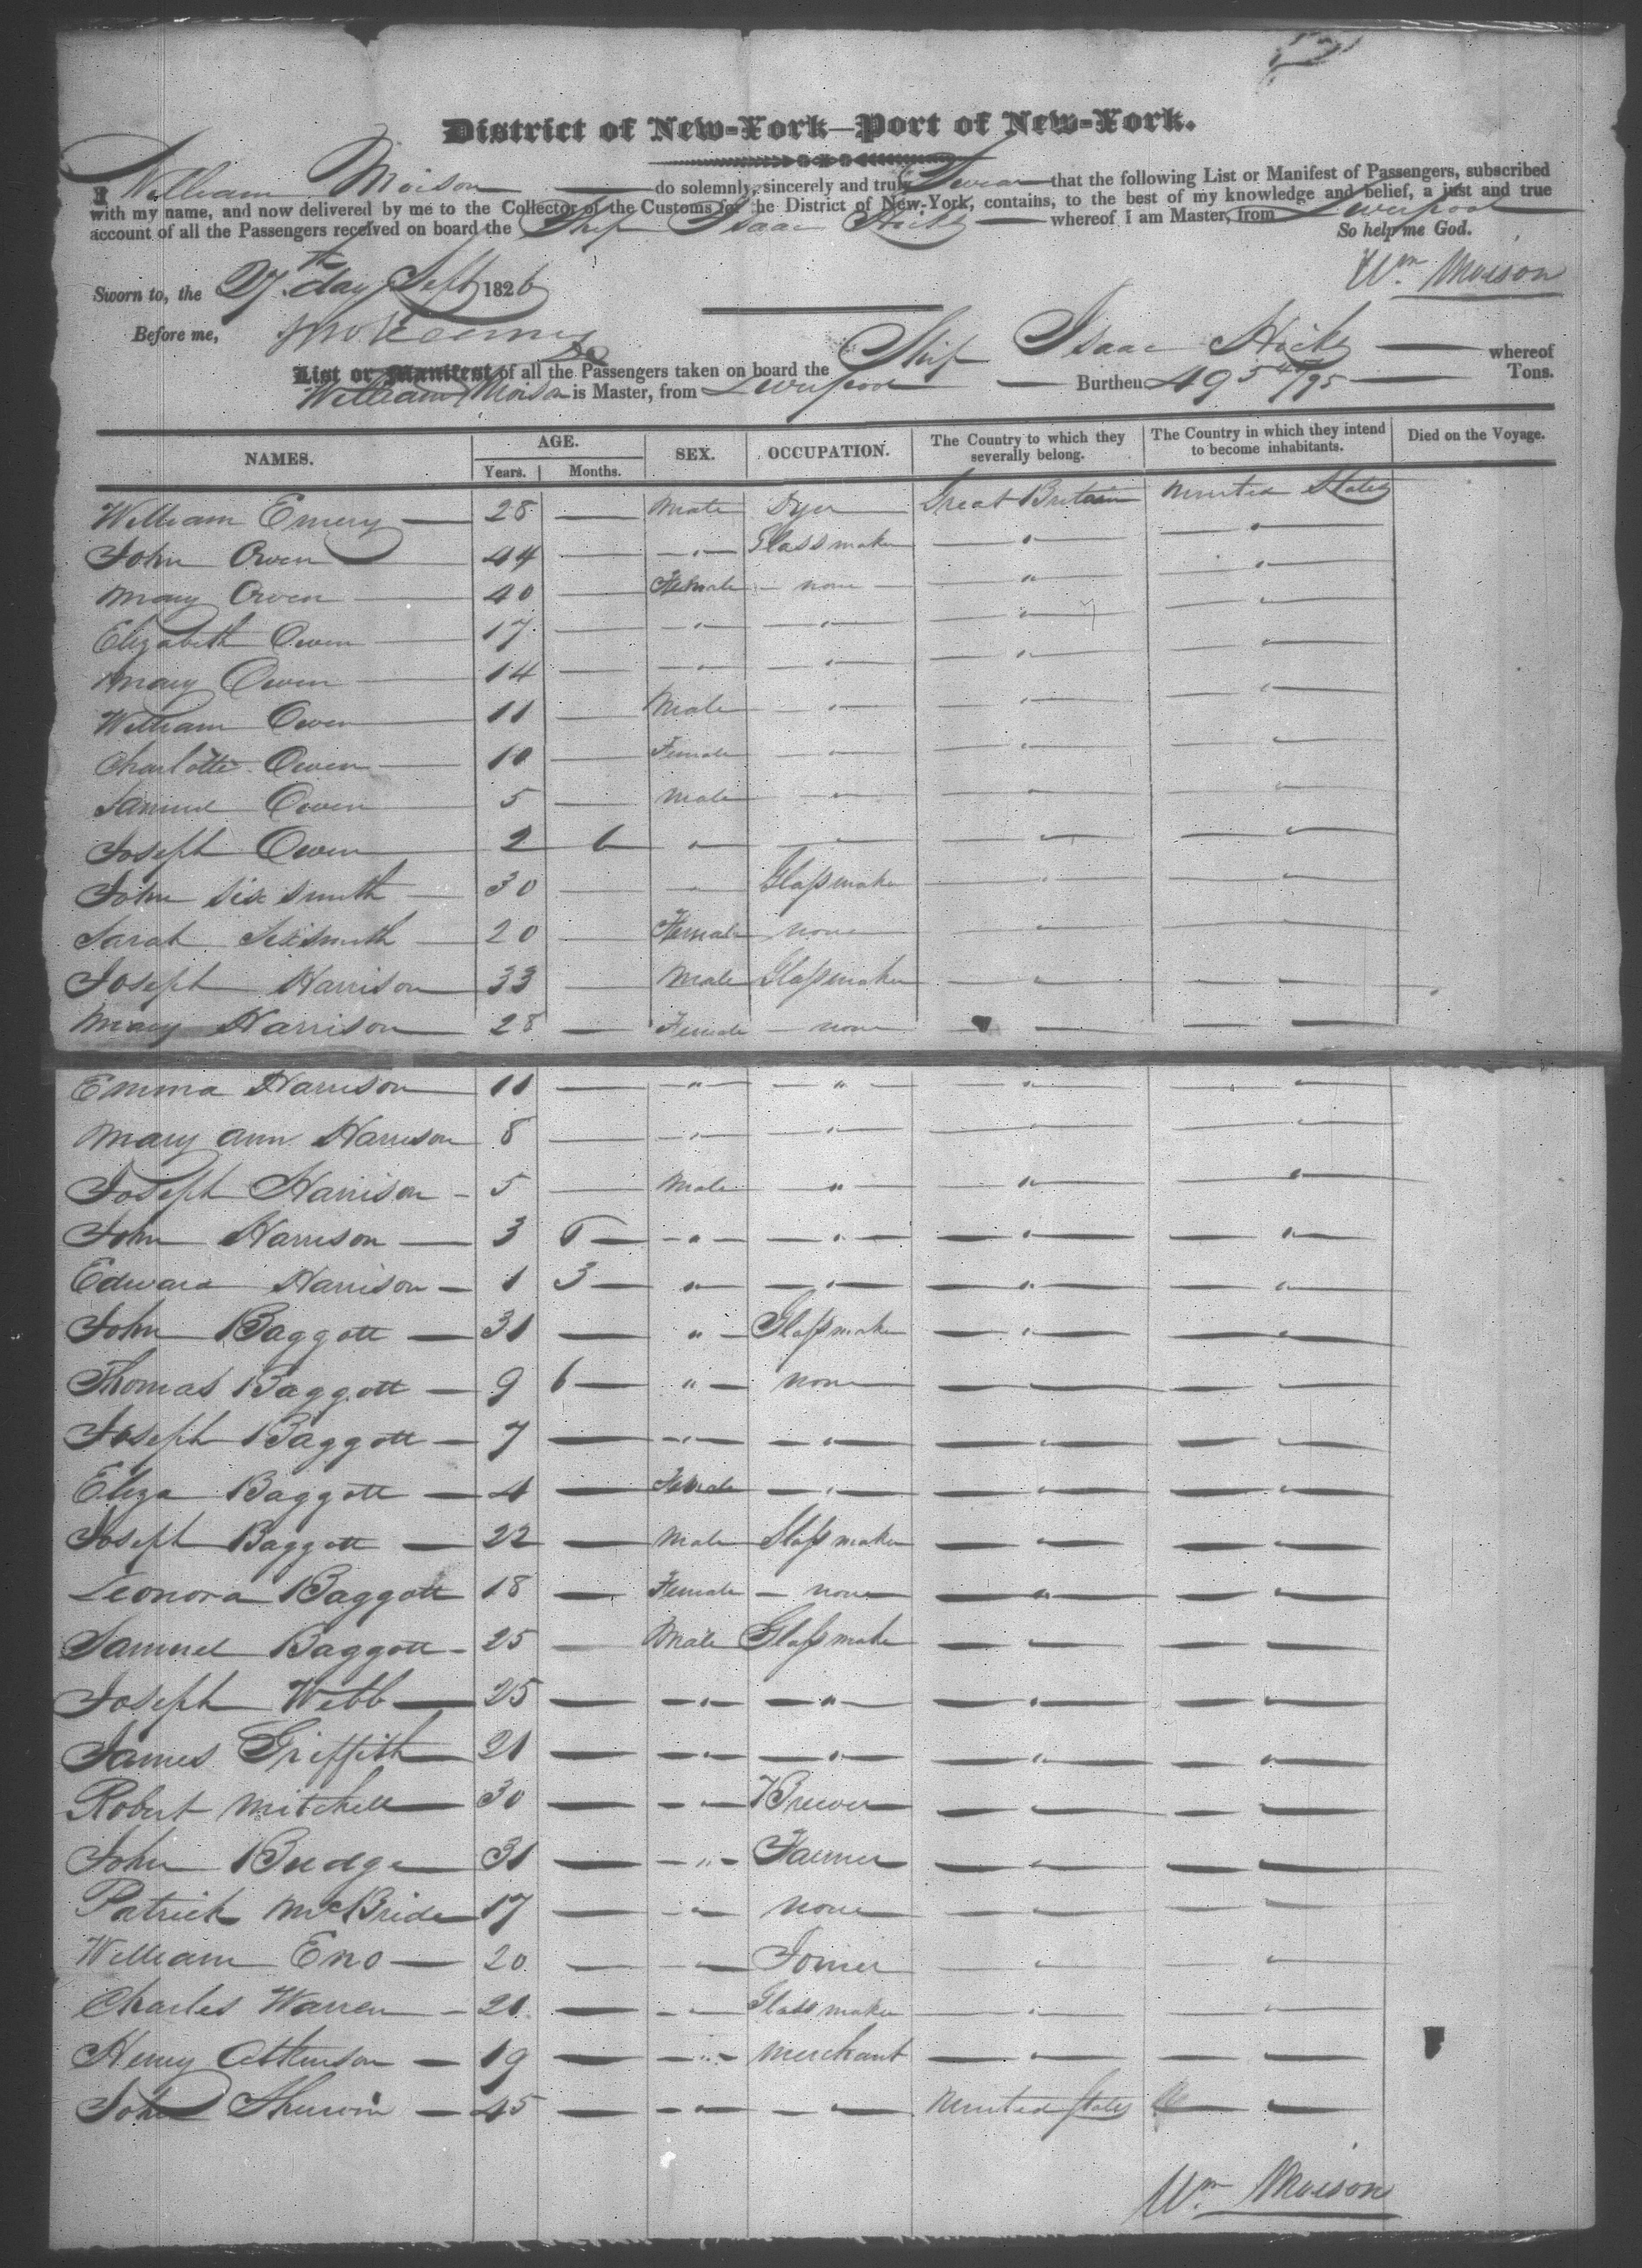 District of New-York—Port of New-York.
I William Moison — do solemnly, sincerely and truly Swear that the following List or Manifest of Passengers, subscribed
with my name, and now delivered by me to the Collector of the Customs for the District of New-York, contains, to the best of my knowledge and belief, a just and true
account of all the Passengers received on board the Ship Isaac Hicks — whereof I am Master, from Liverpool
So help me God.
Sworn to, the 27th day Sept 1826 Wm. Moison
Before me,
List or Manifest of all the Passengers taken on board the Ship Isaac Hicks — whereof
William Moison is Master, from Liverpool — Burthen 495 47/95 — Tons.
NAMES. AGE. Years. Months. SEX. OCCUPATION. The Country to which they severally belong. The Country in which they intend to become inhabitants. Died on the Voyage.
William Emery — 28 — Male Dyer Great Britain United States
John Owen 44 — " Glassmaker " "
Mary Owen — 40 — Female none " "
Elizabeth Owen — 17 — " " " "
Mary Owen — 14 — " " " "
William Owen — 11 — Male " " "
Charlotte Owen — 10 — Female " " "
Samuel Owen — 5 — Male " " "
Joseph Owen — 2 6 " " " "
John Sixsmith — 30 — " Glassmaker " "
Sarah Sixsmith — 20 — Female none " "
Joseph Harrison — 33 — Male Glassmaker " "
Mary Harrison — 28 — Female none — —
Emma Harrison — 11 — " " " "
Mary Ann Harrison 8 — " " " "
Joseph Harrison — 5 — Male " " "
John Harrison — 3 6 " " " "
Edward Harrison — 1 3 " " " "
John Baggott — 31 — " Glassmaker " "
Thomas Baggott — 9 6 " none — —
Joseph Baggott — 7 — " " " "
Eliza Baggott — 4 — Female " " "
Joseph Baggott — 22 — Male Glassmaker " "
Leonora Baggott 18 — Female none " "
Samuel Baggott — 25 — Male Glassmaker " "
Joseph Webb — 25 — " " " "
James Griffith — 21 — " " " "
Robert Mitchell — 30 — " Brewer " "
John Budge — 31 — " Farmer " "
Patrick McBride 17 — " none " "
William Eno — 20 — " Joiner " "
Charles Warren — 21 — " Glassmaker " "
Henry Atkinson — 19 — " Merchant " "
John Sherwin — 45 — " " United States "
Wm. Moison